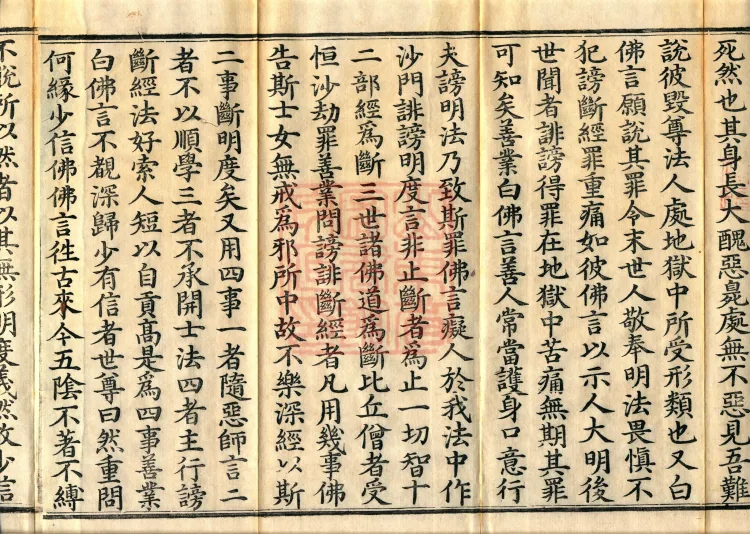 死然也其身長大醜惡臰處無不惡見吾難
說彼毀尊法人處地獄中所受形類也又白
佛言願說其罪令末世人敬奉明法畏愼不
犯謗斷經罪重痛如彼佛言以示人大明後
世聞者誹謗得罪在地獄中苦痛無期其罪
可知矣善業白佛言善人常當護身口意行
夫謗明法乃致斯罪佛言癡人於我法中作
沙門誹謗明度言非止斷者爲止一切智十
二部經爲斷三世諸佛道爲斷比丘僧者受
恒沙劫罪善業問謗誹斷經者凡用幾事佛
告斯士女無戒爲邪所中故不樂深經以斯
二事斷明度矣又用四事一者隨惡師言二
者不以順學三者不承開士法四者主行謗
斷經法好索人短以自貢高是爲四事善業
白佛言不覩深歸少有信者世尊曰然重問
何緣少信佛佛言徃古來今五陰不著不縛
不脫所以然者以其無形明度義然故少信